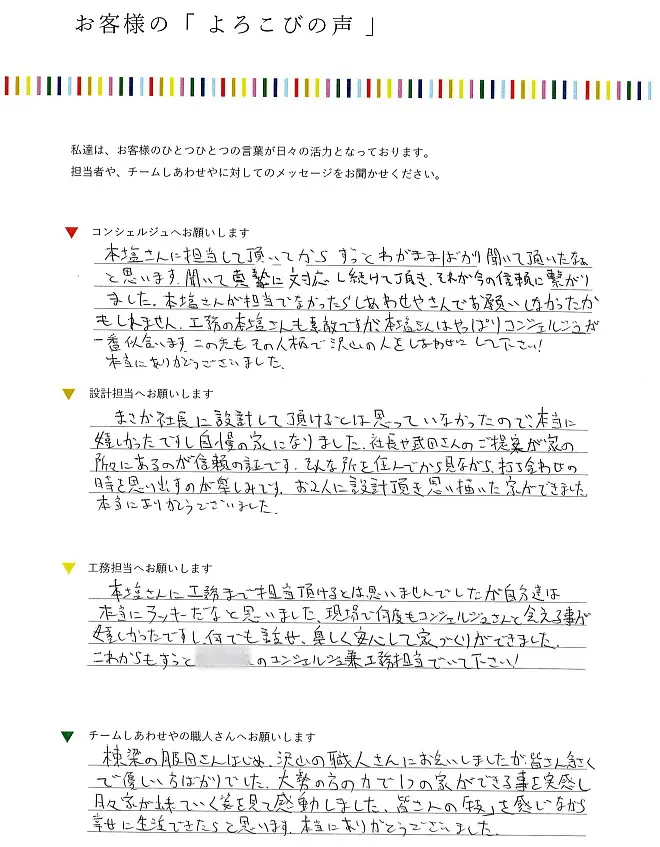 お客様の「 よろこびの声 」
私達は、お客様のひとつひとつの言葉が日々の活力となっております。
担当者や、チームしあわせやに対してのメッセージをお聞かせください。
コンシェルジュへお願いします
本塩さんに担当して頂いてから ずっとわがままばかり聞いて頂いたなぁ
と思います。聞いて真摯に対応し続けて頂き、それが今の信頼に繋がり
ました。本塩さんが担当でなかったらしあわせやさんでお願いしなかったか
もしれません。工務の本塩さんも素敵ですが本塩さんはやっぱりコンシェルジュが
一番似合います。この先もその人柄で沢山の人をしあわせにして下さい!
本当にありがとうございました。
設計担当へお願いします
まさか社長に設計して頂けるとは思っていなかったので、本当に
嬉しかったですし自慢の家になりました。社長や武田さんのご提案が家の
所々にあるのが信頼の証です。そんな所を住んでから見ながら、打ち合わせの
時を思い出すのが楽しみです。お2人に設計頂き思い描いた家ができました。
本当にありがとうございました。
工務担当へお願いします
本塩さんに工務まで担当頂けるとは思いませんでしたが自分達は
本当にラッキーだなと思いました。現場で何度もコンシェルジュさんと会える事が
嬉しかったですし、何でも話せ、楽しく安心して家づくりができました。
これからもずっと のコンシェルジュ兼工務担当でいて下さい!
チームしあわせやの職人さんへお願いします
棟梁の服田さんはじめ、沢山の職人さんにお会いしましたが、皆さん気さく
で優しい方ばかりでした。大勢の方の力で1つの家ができる事を実感し
日々家が出来ていく姿を見て感動しました。皆さんの「技」を感じながら
幸せに生活できたらと思います。本当にありがとうございました。